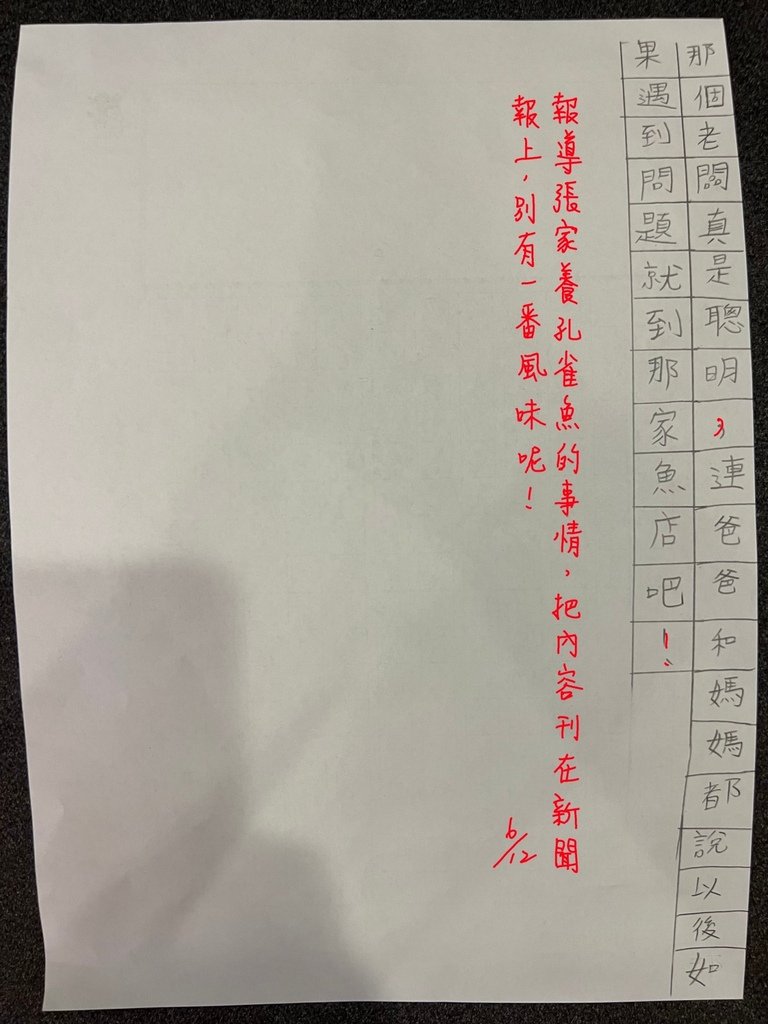 那個老闆真是聰明,連爸爸和媽媽都說以後如
果遇到問題就到那家魚店吧!
報導張家養孔雀魚的事情,把內容刊在新聞
報上,別有一番風味呢!
6/12